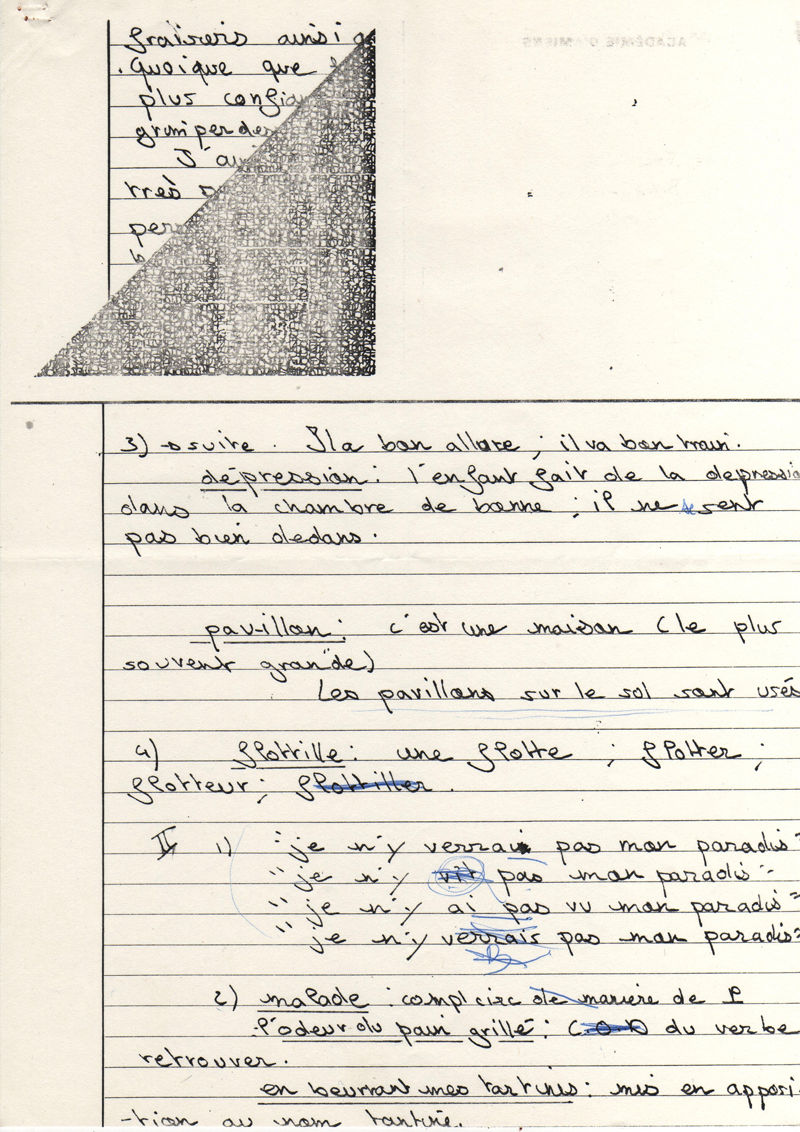 ACADÉMIE D'AMIENS
fraiseis ainsi
. Quoique que
plus confia
grimper de
J'au
tres
per
3) → suite . Il a bon allure ; il va bon train.
dépression : l'enfant fait de la depressio
dans la chambre de bonne ; il ne se sent
pas bien dedans.
pavillon : c'est une maison (le plus
souvent grande)
Les pavillons sur le sol sont usés
4) flottille : une flotte ; flotter ;
flotteur ; flottiller .
II 1) "je n'y verrai pas mon paradis"
"je n'y vit pas mon paradis"
"je n'y ai pas vu mon paradis"
"je n'y verrais pas mon paradis"
2) malade : compl circ de manière de L
l'odeur du pain grillé : C.O.D du verbe
retrouver.
en beurrant mes tartines : mis en apposi
-tion au nom tartine.